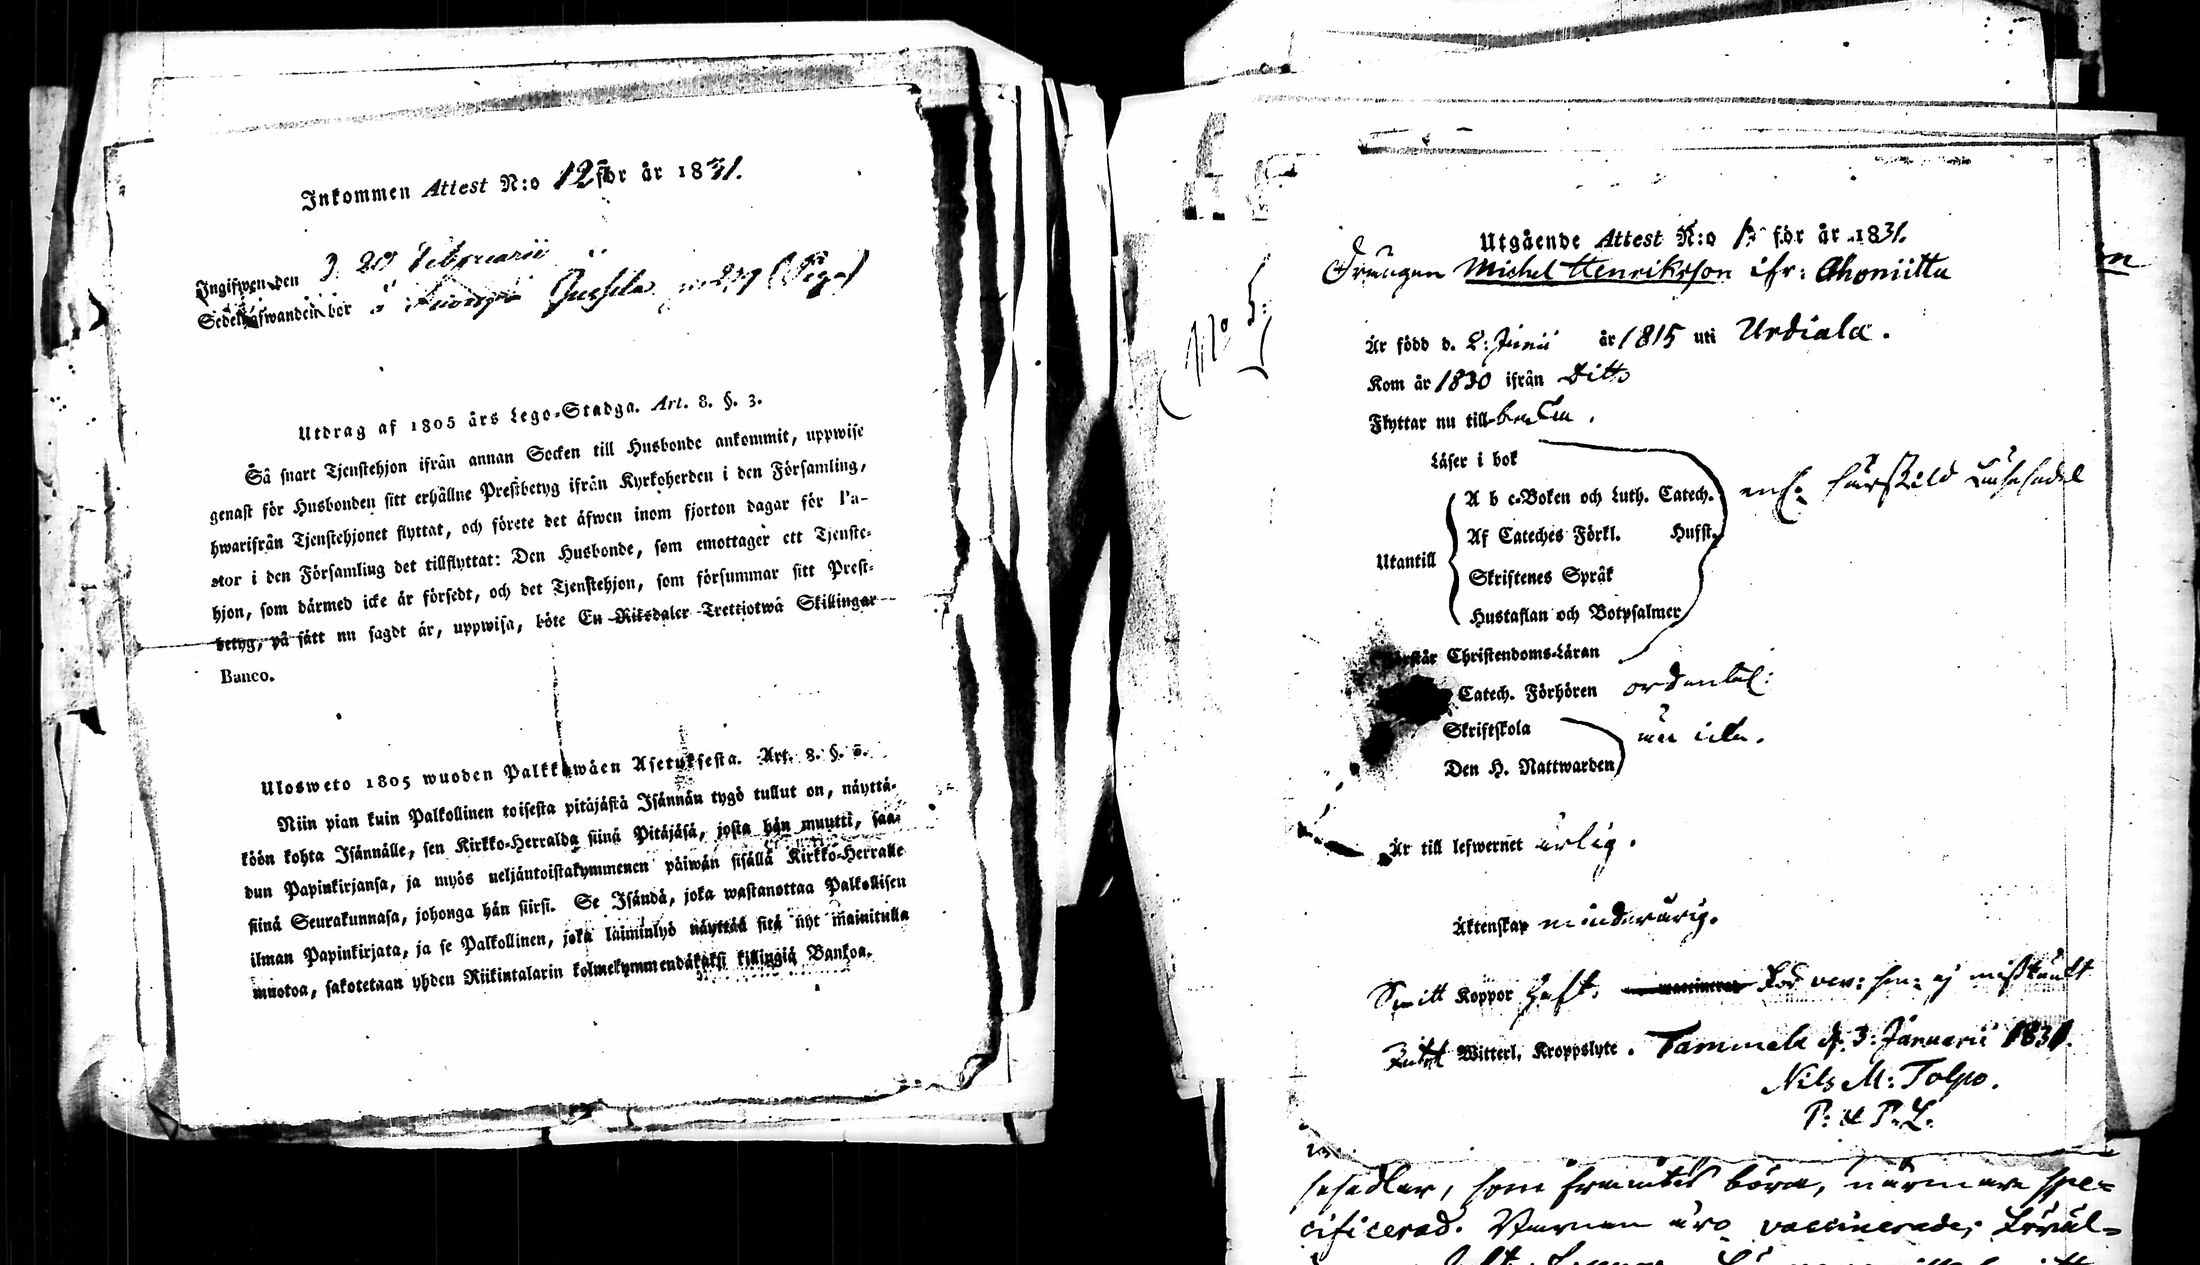 Inkommen Attest N:o 12 för år 1831.
Ingifwen den 20 Februarii
Sedelhafwanden bor å Jussila
Utdrag af 1805 års Lego-Stadga. Art. 8. §. 3.
Så snart Tjenstehjon ifrån annan Socken till Husbonde ankommit, uppwise
genast för Husbonden sitt erhållne Prestbetyg ifrån Kyrkoherden i den Församling,
hwarifrån Tjenstehjonet flyttat, och förete det äfwen inom fjorton dagar för Pa-
stor i den Församling det tillflyttat: Den Husbonde, som emottager ett Tjenste-
hjon, som därmed icke är försedt, och det Tjenstehjon, som försummar sitt Prest-
betyg, på sätt nu sagdt är, uppwisa, böte En Riksdaler Trettiotwå Skillingar
Banco.
Ulosweto 1805 wuoden Palkkawäen Asetuksesta. Art. 8. §. 3.
Niin pian kuin Palkollinen toisesta pitäjästä Isännän tygö tullut on, näyttä-
köön kohta Isännälle, sen Kirkko-Herralda siinä Pitäjäsä, josta hän muutti, saa-
dun Papinkirjansa, ja myös neljäntoistakymmenen päiwän sisällä Kirkko-Herralle
siinä Seurakunnasa, johonga hän siirsi. Se Isändä, joka wastanottaa Palkollisen
ilman Papinkirjata, ja se Palkollinen, joka laiminlyö näyttää sitä nyt mainitulla
muotoa, sakotetaan yhden Riikintalarin kolmekymmendäkaksi killingiä Bankoa.
N:o 5:
Utgående Attest N:o för år 1831.
Drängen Michel Henriksson ifr: Ahoniittu
Är född d. 2: Junii år 1815 uti Urdiala.
Kom år 1830 ifrån Ditto
Flyttar nu till
Läser i bok
A b c-Boken och Luth. Catech.
Af Cateches Förkl. Husst.
Utantill
Skriftenes Språk
Hustaflan och Botpsalmer
enl: särskild Läsesedel
Förstår Christendoms-Läran
Catech. Förhören ordentel:
Skriftskola
Den H. Nattwarden
än icke.
Är till lefwernet ärlig.
Äktenskap minderårig.
Smitt Koppor haft. Död ver: hen: ej misstänkt
Witterl. Kroppslyte. Tammela d. 3: Januarii 1831.
Nils M: Tolpo.
P. & P. L.
sesedlar, som framtel böra, närmare spe-
cificerad. Barnen äro vaccinerade;